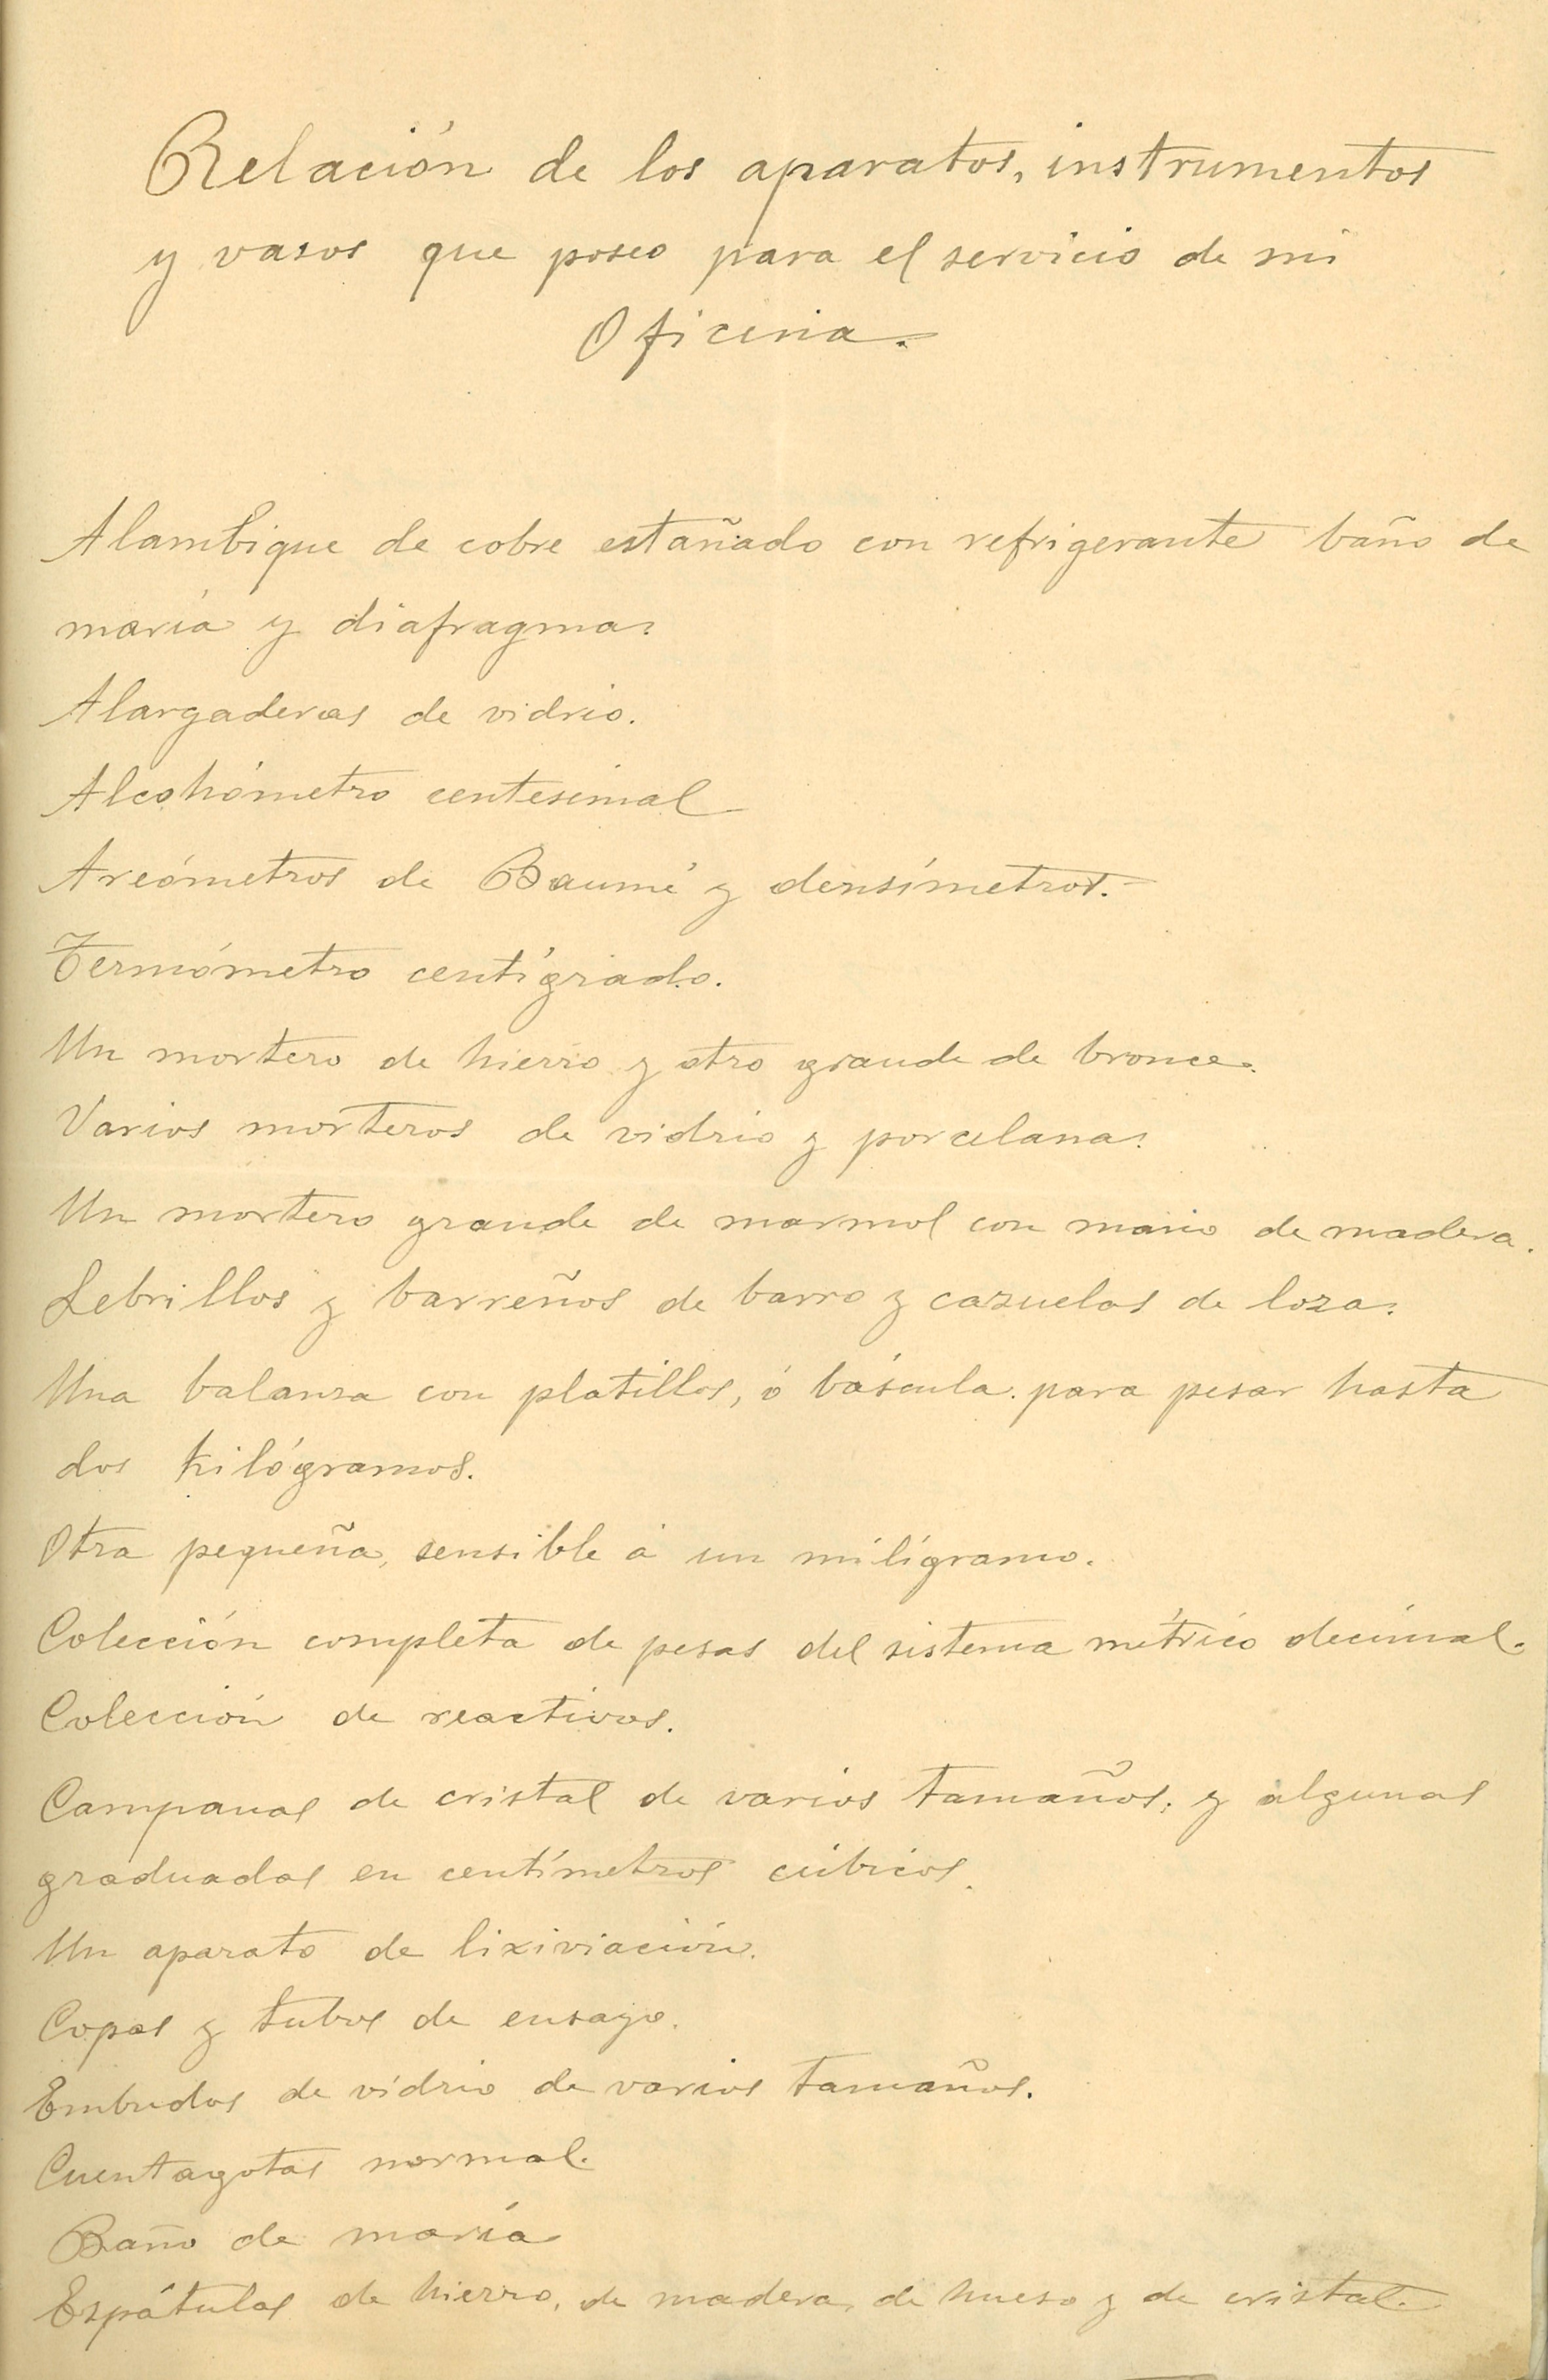 Relación de los aparatos, instrumentos
y vasos que poseo para el servicio de mi
Oficina.
Alambique de cobre estañado con refrigerante baño de
maría y diafragma.
Alargaderas de vidrio.
Alcohómetro centesimal
Areómetros de Baumé y densímetros.
Termómetro centígrado.
Un mortero de hierro y otro grande de bronce.
Varios morteros de vidrio y porcelana.
Un mortero grande de marmol con mano de madera.
Lebrillos y barreños de barro y cazuelas de loza.
Una balanza con platillos, ó báscula para pesar hasta
dos kilógramos.
Otra pequeña, sensible á un milígramo.
Colección completa de pesas del sistema métrico decimal.
Colección de reactivos.
Campanas de cristal de varios tamaños, y algunas
graduadas en centímetros cúbicos.
Un aparato de lixiviación.
Copas y tubos de ensayo.
Embudos de vidrio de varios tamaños.
Cuentagotas normal.
Baño de maría
Espátulas de hierro, de madera, de hueso y de cristal.